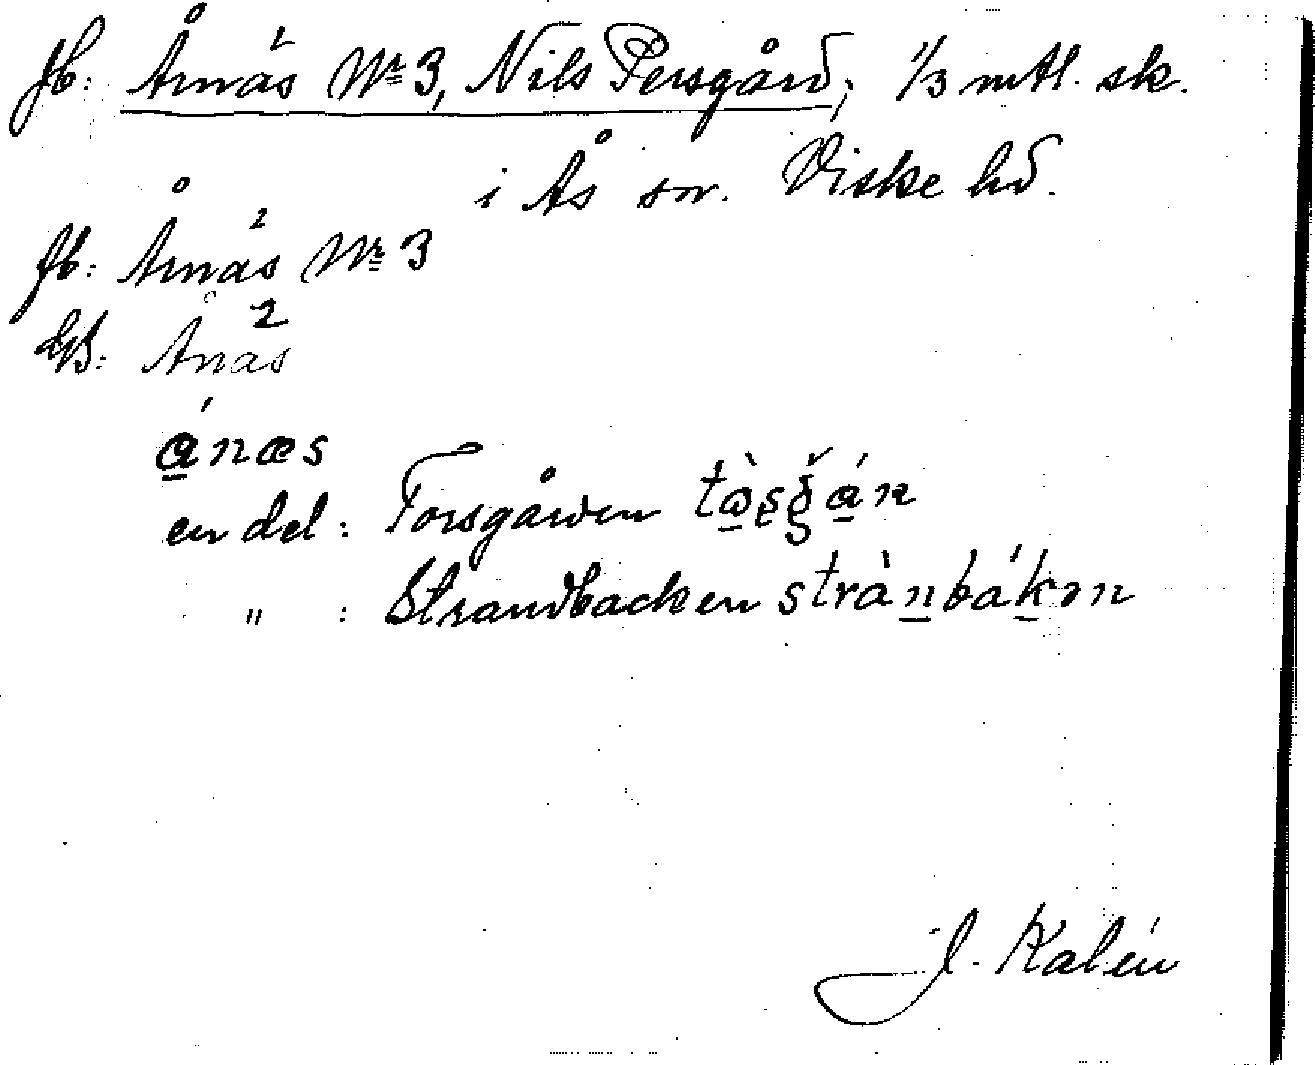 Jb: Årnäs № 3, Nils Persgård; 1/3 mtl. sk.
i Ås sn. Viske hd.
Jb: Årnäs № 3
GS: Ånäs
ánæs
en del: Forsgården
" : Strandbacken strànbákɪn
J. Kalén